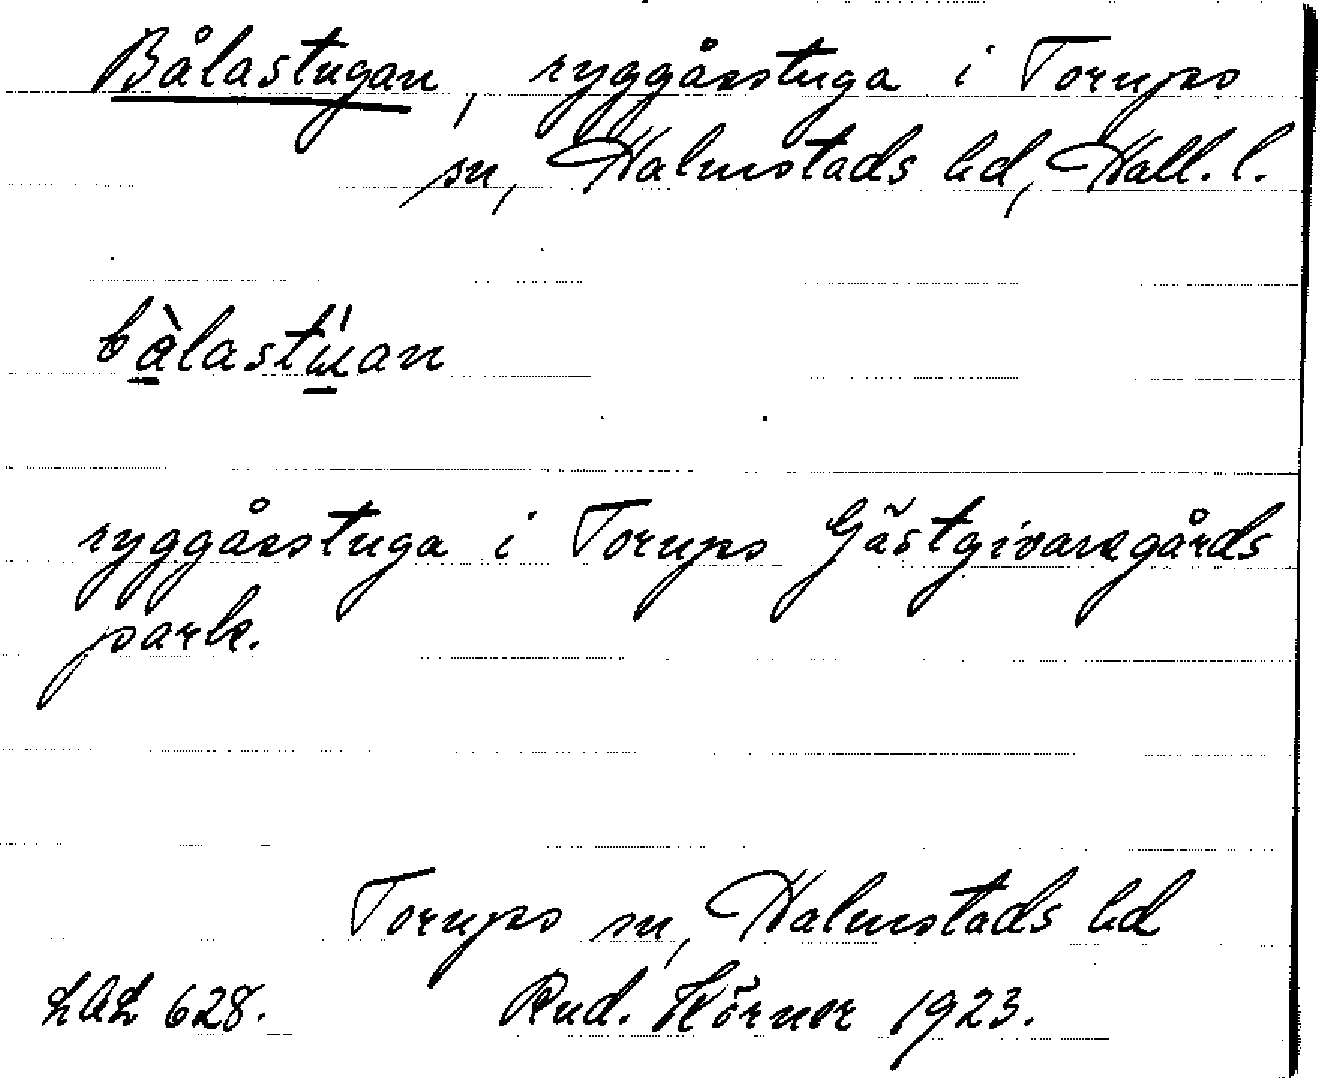 Bålastugan, ryggåsstuga i Torups
sn, Halmstads hd, Hall. l.
bàlastu̍an
ryggåsstuga i Torups Gästgivaregårds
park.
Torups sn, Halmstads hd
LAL 628. Rud. Hörner 1923.